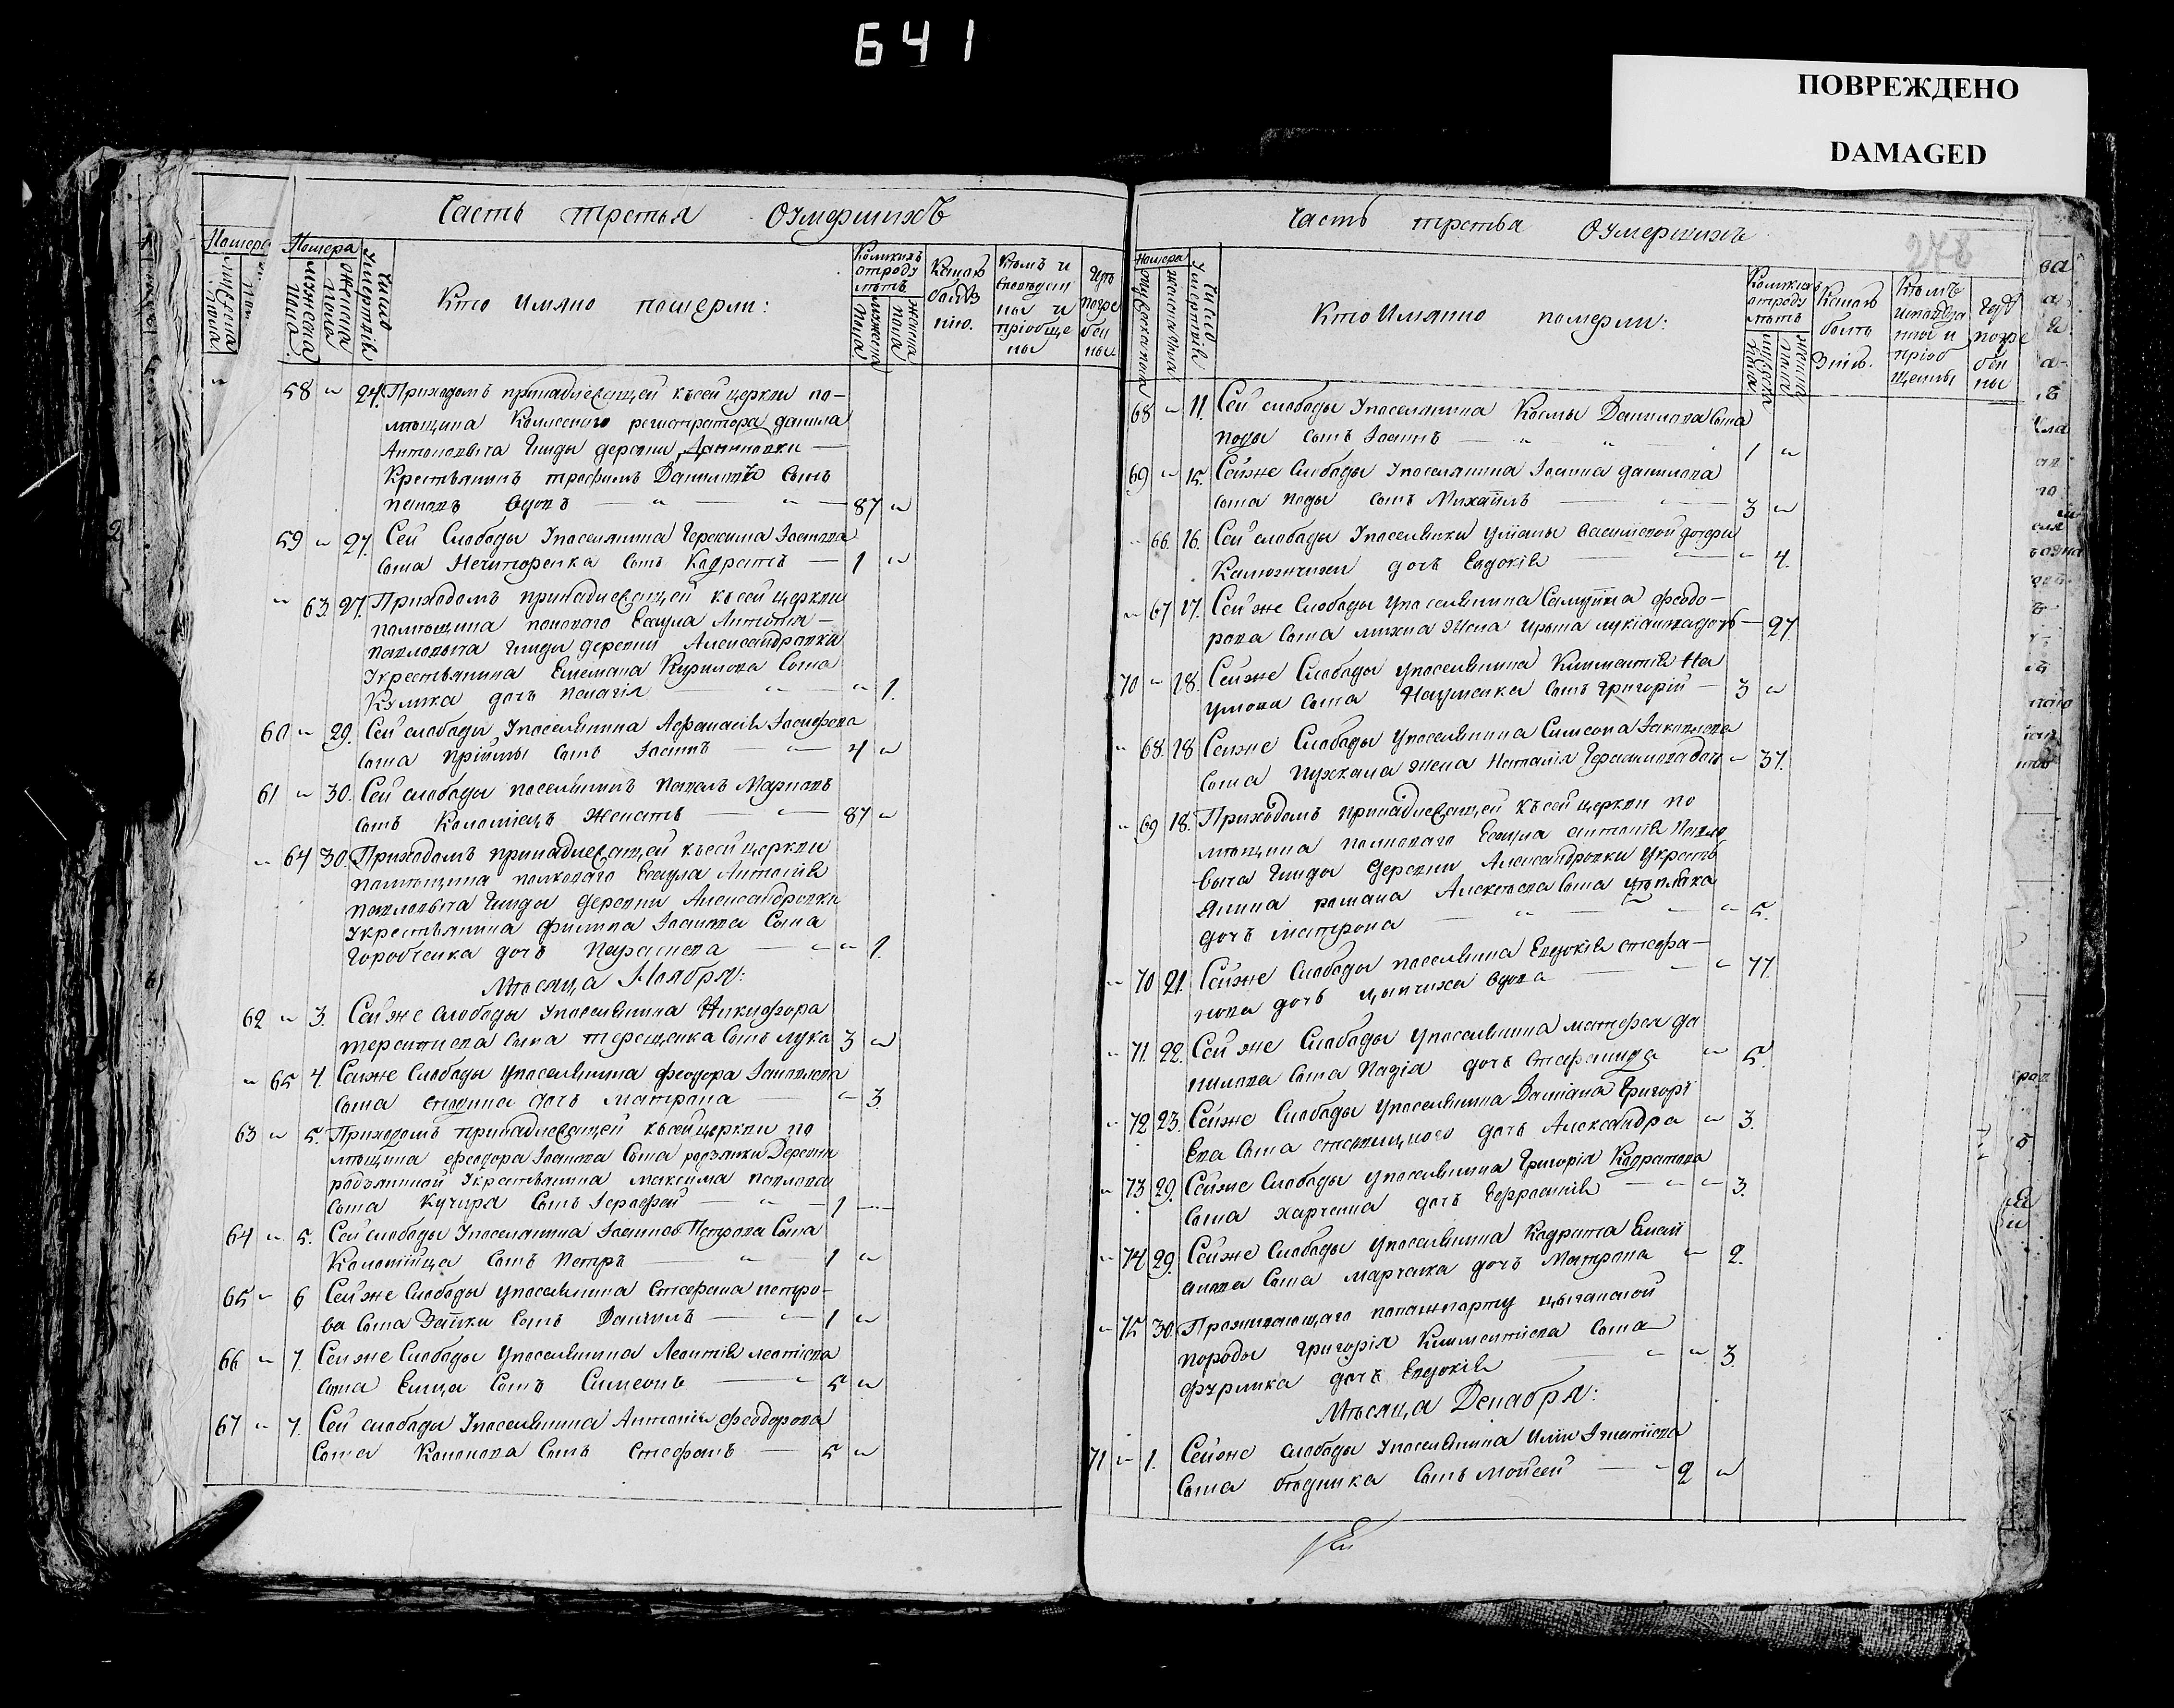 641
ПОВРЕЖДЕНО
DAMAGED
Часть третья О умершихъ
Номера
мужеска пола
женска пола
Число умертвія
Кто имяно померли:
Коликихъ отроду лѣтъ
мужеска пола
женска пола
Какою болѣзнію.
Кѣмъ исповѣданы и пріобщены
Гдѣ погребены
58 " 24. Приходомъ принадлежащей къ сей церкви по-
мѣщика Колежского регистратора данила
Антоновича Гинды деревни Даниловки —
Крестьянинъ трофимъ Даниловъ сынъ
поповъ вдовъ — " — " — 87 "
59 " 27. Сей Слабоды Упоселянина Герасима Іоанова
сына Нечипоренка сынъ Кодратъ — 1 "
" 63 27. Приходомъ принадлежащей къ сей церкви
помѣщика полковаго Есаула Антонія —
павловича Гинды деревни Александровки
Укрестьянина Емелiана Кирилова сына
Кулика дочь пелагія " — " 1.
60 " 29. Сей слабоды Упоселянина Афанасія Іосифова
сына пріймы сынъ Іоаннъ " — 4 "
61 " 30. Сей слабоды поселянинъ павелъ Марковъ
сынъ Коломіецъ женатъ — " — 87 "
" 64 30. Приходомъ принадлежащей къ сей церкви
помѣщика полковаго Есаула Антонія
павловича Гинды деревни Александровки
Укрестьянина филипа Іоанова сына
Горобченка дочь Параскева — " " 1.
Мѣсяца Ноября:
62 " 3. Сей же слабоды Упоселянина Никифора
терентиева сына терещенка сынъ лука 3 "
" 65 4. Сей же Слабоды Упоселянина феодора Іаковлева
сына дочь Матрона — " 3.
63 " 5. Приходомъ принадлежащей къ сей церкви по
мѣщика феодора Іоанова сына родзянки Деревни
родзянкой Укрестьянина максима павлова
сына Кучира сынъ Іерофей — " — 1 —
64 " 5. Сей слабоды Упоселянина Іоанна Петрова сына
Коломійца сынъ Петръ — " 1 "
65 " 6 Сей же Слабоды Упоселянина Стефана петро-
ва сына Зайки сынъ Даниилъ — " 1 "
66 " 7. Сей же Слабоды Упоселянина Леонтія леонтіева
сына сынъ Симеонъ — " 5 "
67 " 7. Сей слабоды Упоселянина Антонія феодорова
сына Кононова сынъ Стефанъ — 5 "
Часть третья О умершихъ
278
Номера
мужеска пола
женска пола
Число умертвія
Кто Имянно померли:
Коликихъ отроду лѣтъ
мужеска пола
женска пола
Какою болѣзнію.
Кѣмъ исповѣданы и пріобщены
Гдѣ погребены
68 " 11. Сей слабоды Упоселянина Космы Данилова сына
поды сынъ Іоаннъ — " — " — 1 "
69 " 15. Сей же Слабоды Упоселянина Іоанна данилова
сына поды сынъ Михаилъ — " — 3 "
" 66. 16. Сей слабоды Упоселянки Уліаны Василіевой дочери
дочь Евдокія — " 4.
" 67 17. Сей же Слабоды Упоселянина Самуила феодо-
рова сына жена Ирина лукіанова дочь — 27
70 " 18. Сей же Слабоды Упоселянина Климентія На
умова сына Науменка сынъ Григорій — 3 "
" 68. 18 Сей же Слабоды Упоселянина Симеона Іаковлева
сына пужкала жена Наталія Герасимова дочь " 37.
" 69 18. Приходомъ принадлежащей къ сей церкви по
мѣщика полковаго Есаула антонія Павло
вича Гинды Деревни Александровки Укресть
янина романа Алексѣева сына
дочь матрона — " — " " 5.
" 70 21. Сей же Слабоды поселянка Евдокія стефа-
нова дочь вдова — " " 77.
" 71. 22. Сей же Слабоды Упоселянина матфея да
нилова сына дочь Стефанида " 5.
" 72 23. Сей же Слабоды Упоселянина Даміана Григорі
ева сына дочь Александра " 3.
" 73 29. Сей же Слабоды Упоселянина Григорія Кодратова
сына харченка дочь Ефросинія — " " 3.
" 74 29. Сей же Слабоды Упоселянина Кодрата Емелі
анова сына марченка дочь Матрона " 2.
" 75 30. Проживающаго попашпорту цыганской
породы Григорія Климентіева сына
дочь Евдокія — " " 3.
Мѣсяца Декабря:
71 " 1. Сей же слабоды Упоселянина Иліи Игнатіева
сына бѣдника сынъ Моисей — " 2 "